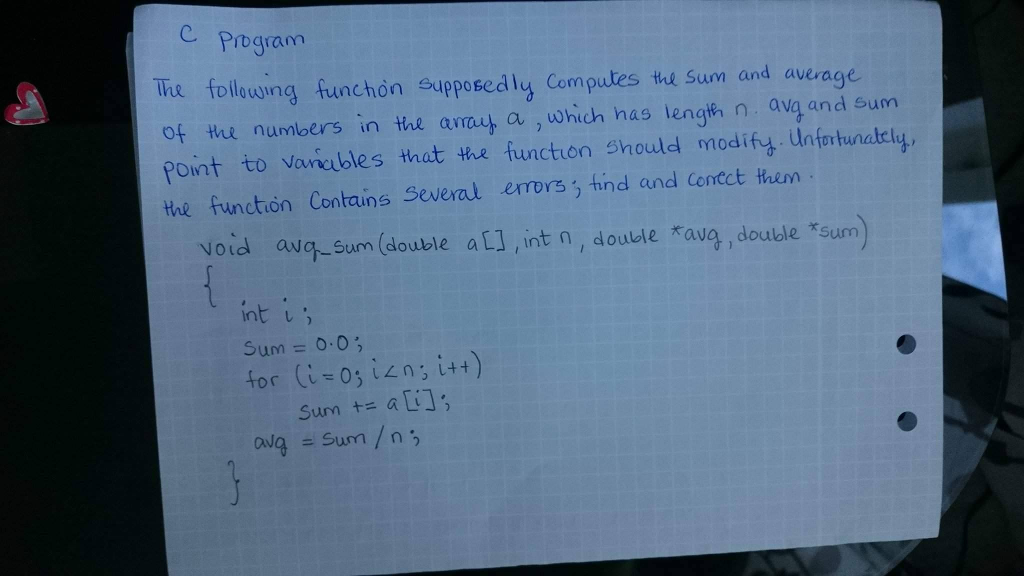 C Program
The following function supposedly computes the sum and average
of the numbers in the array a, which has length n. avg and sum
point to variables that the function should modify. Unfortunately,
the function Contains several errors; find and correct them.
void avg_sum(double a[], int n, double *avg, double *sum)
{
int i;
sum = 0.0;
for (i=0; i<n; i++)
sum += a[i];
avg = sum/n;
}